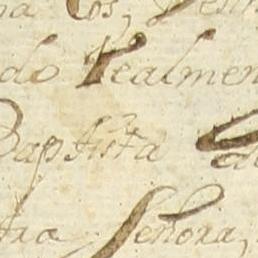 na Os,
do Realmen
Baptista
tra Señora,